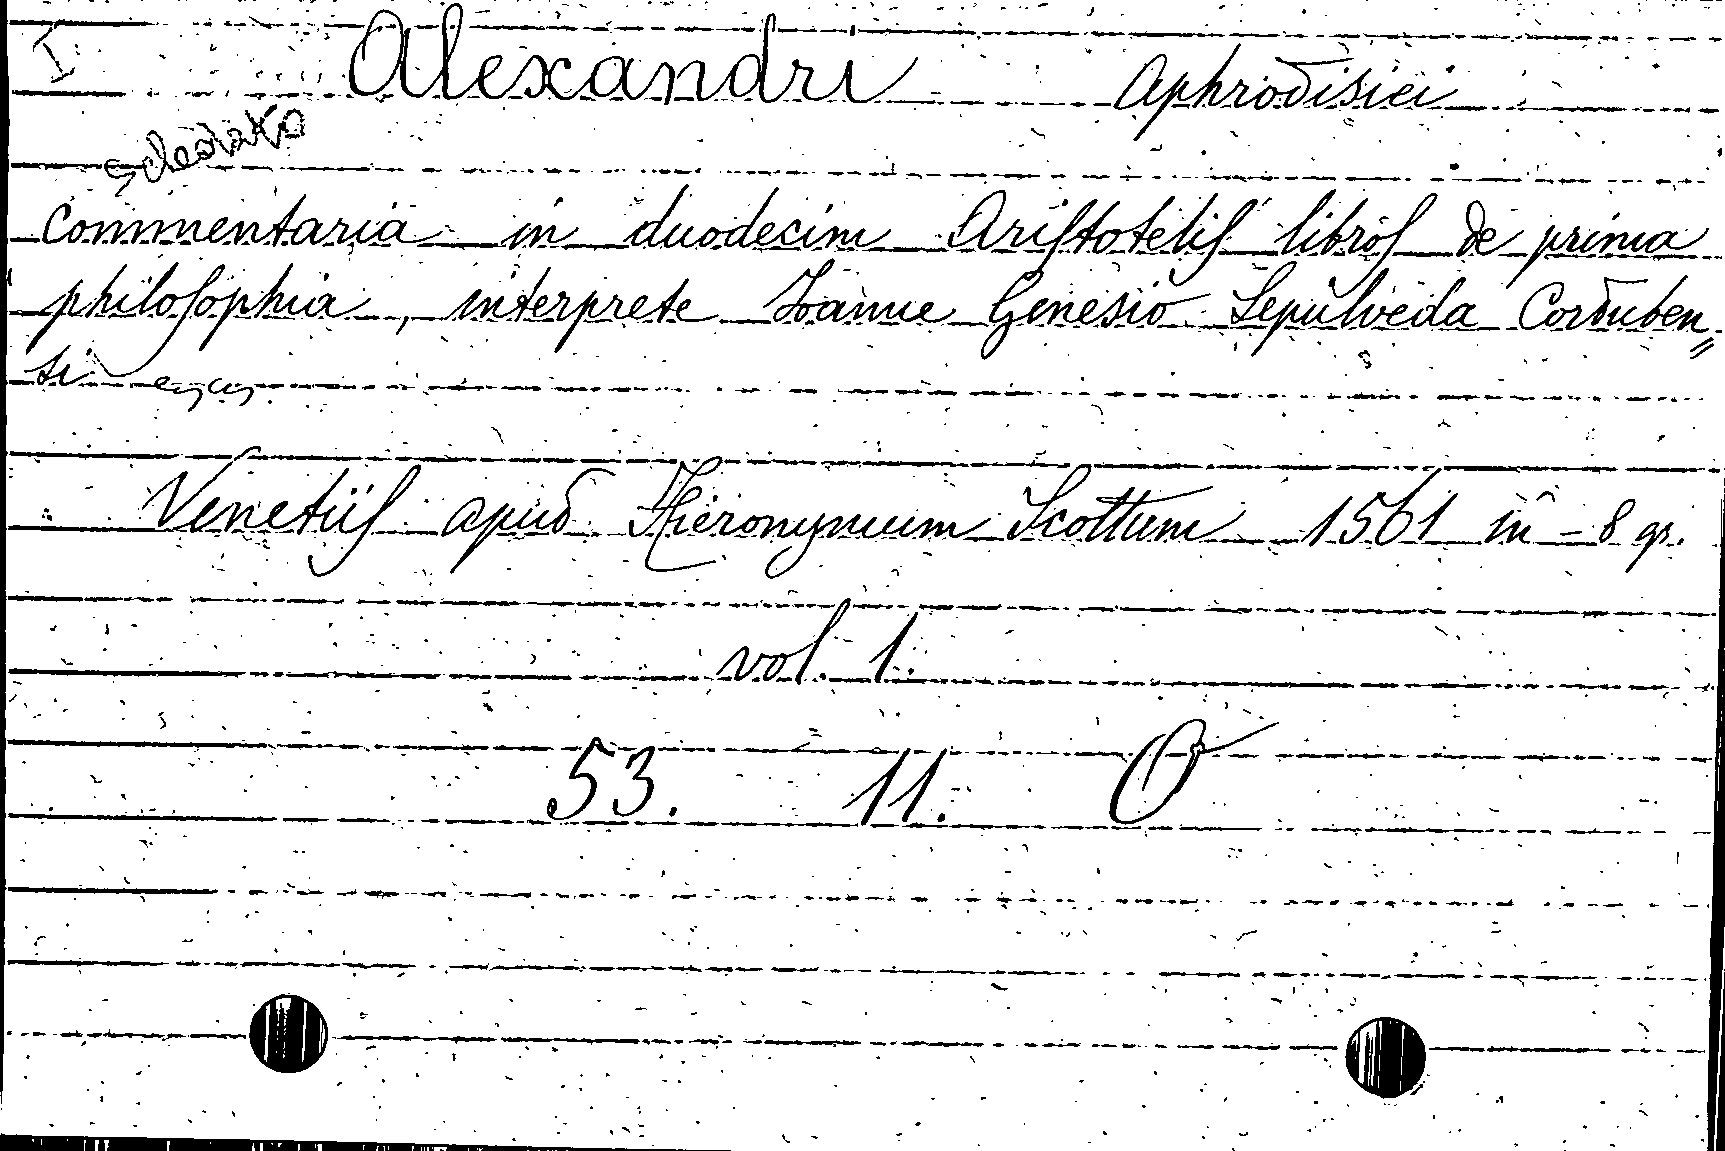 I Alexandri Aphrodisiei
schedato
Commentaria in duodecim Ariſtoteliſ libroſ de prima
philoſophia, interprete Ioanne Genesio Sepulveda Corduben„
si
Venetiiſ apud Hieronymum Scottum 1561 in-8 gr.
vol. 1.
53. 11. O